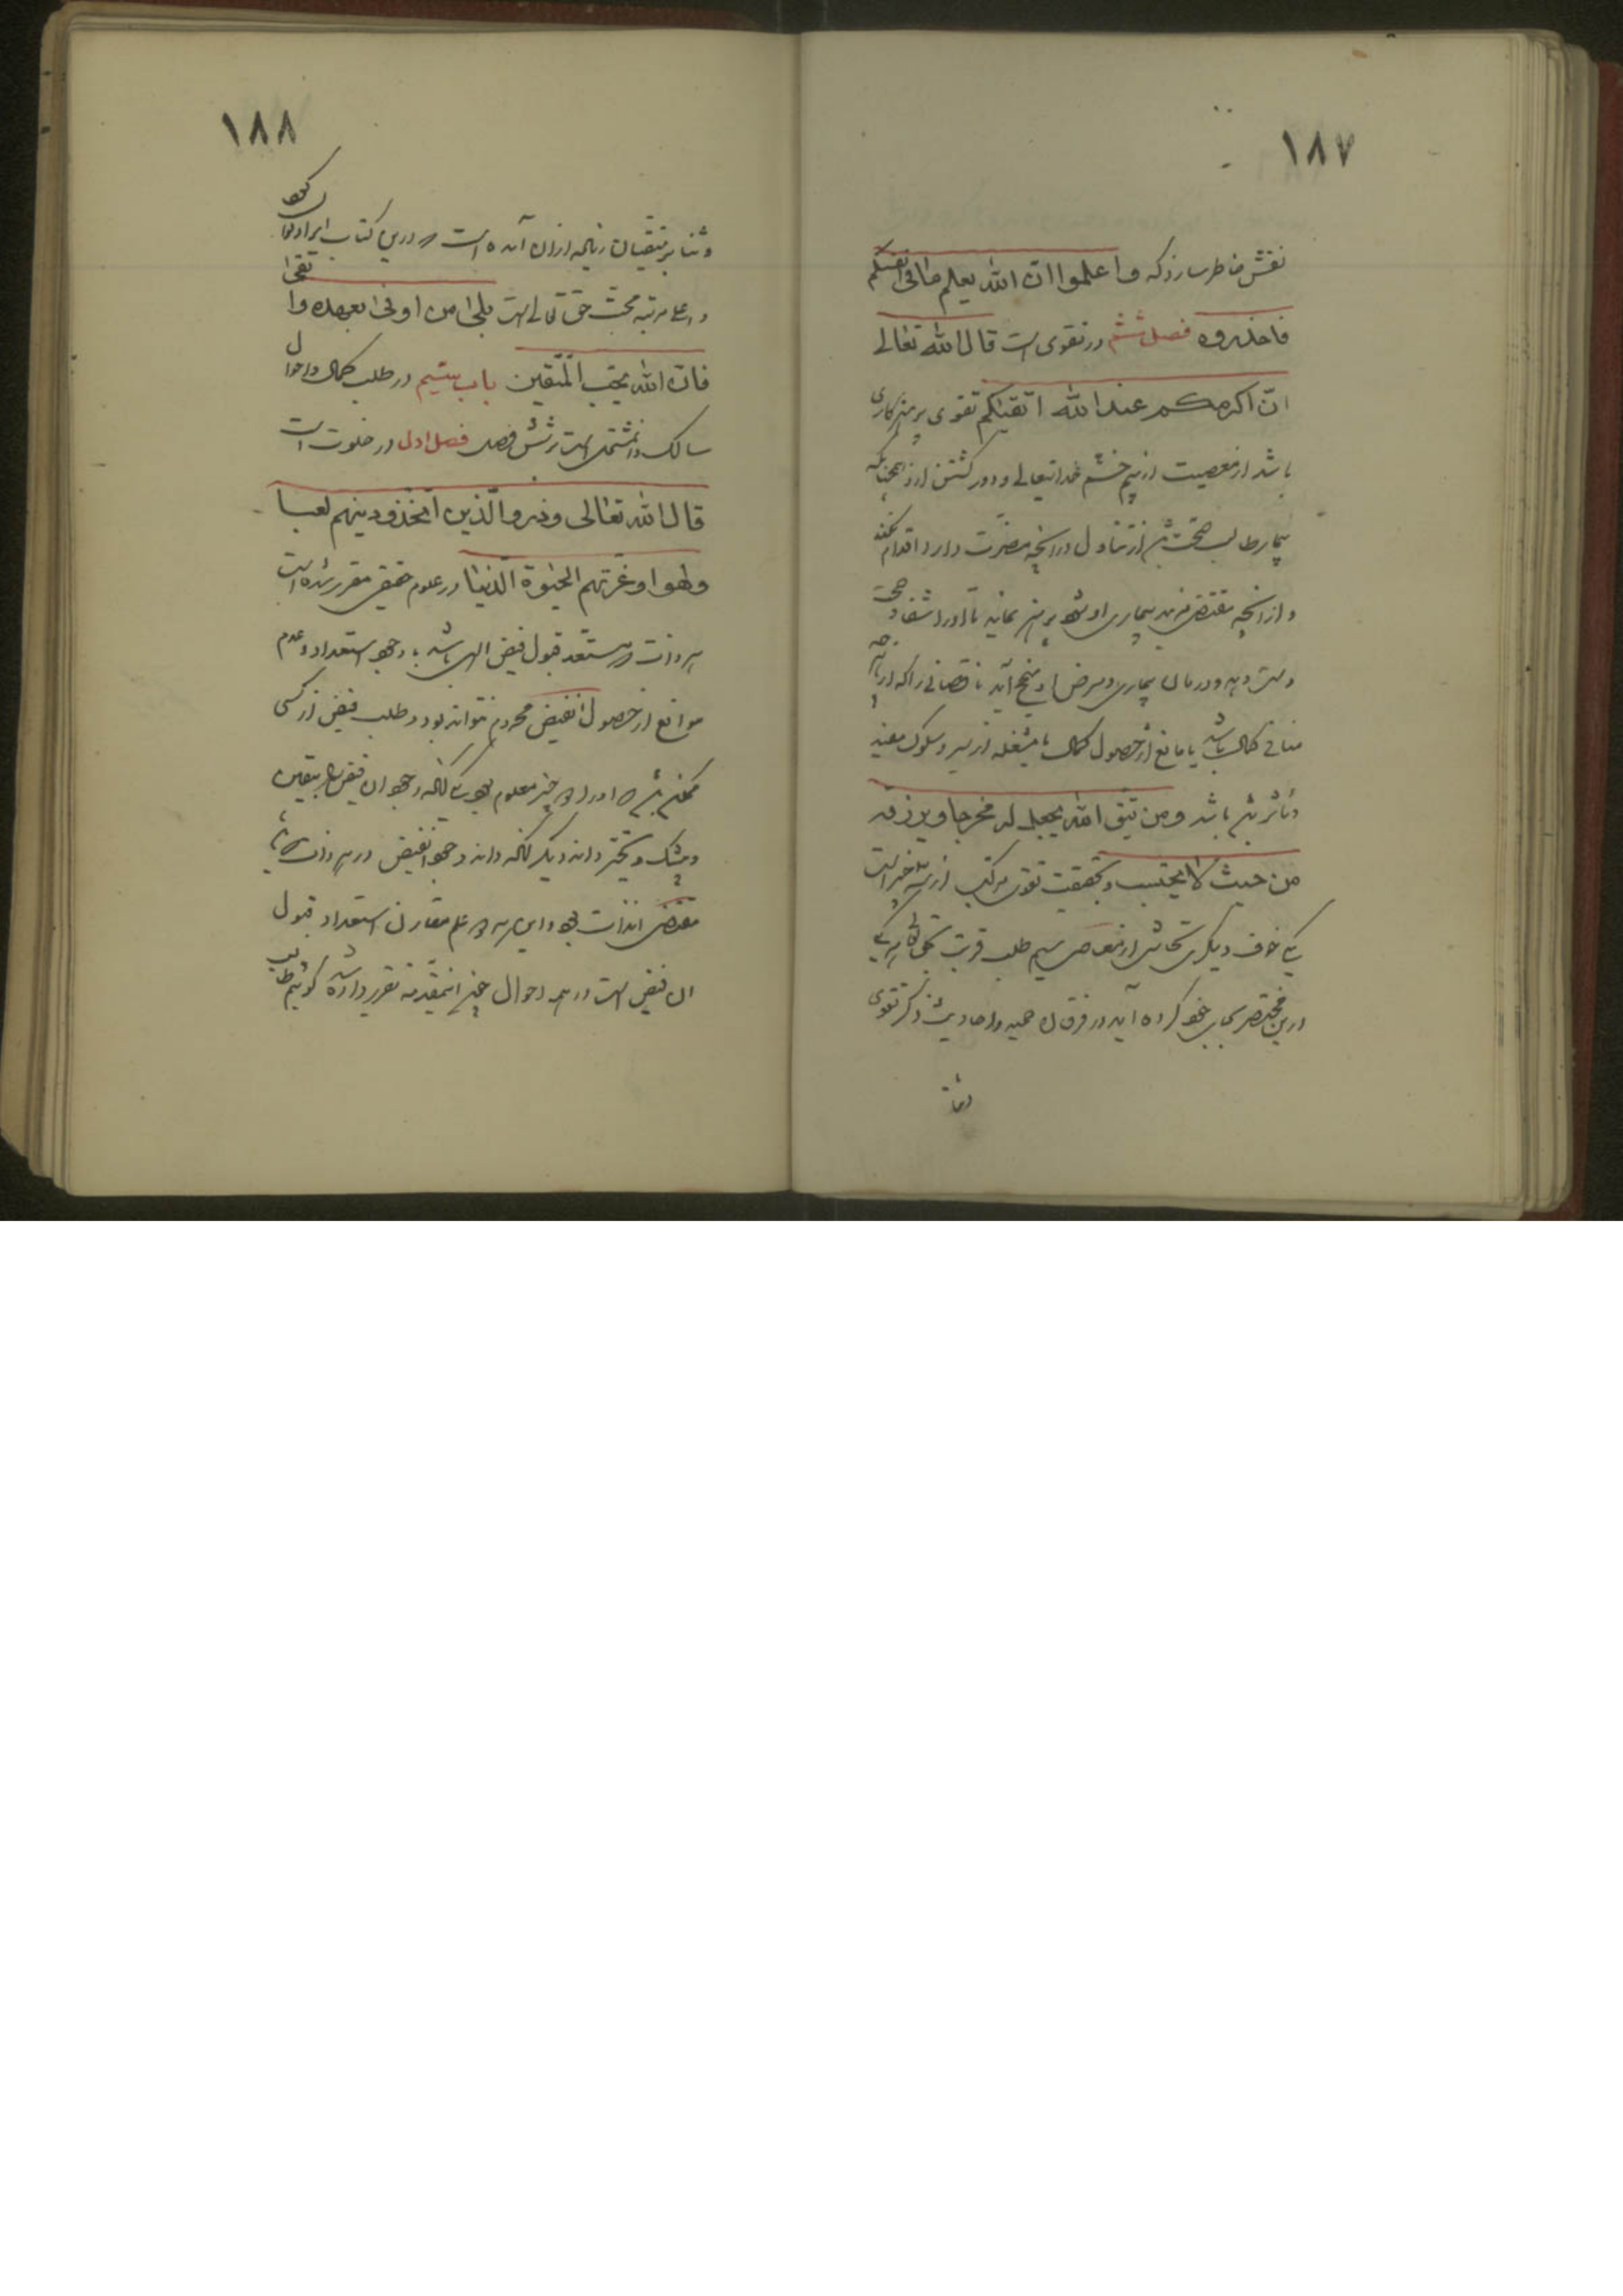 ١٨٧
نقش خاطر سازد که واعلموا ان الله یعلم ما فی انفسکم
فاحذروه فصل ششم در تقوی است قال الله تعالی
ان اکرمکم عند الله اتقیکم تقوی پرهیزکاری
باشد از معصیت از بیم خشم خدایتعالی و دور گشتن ازو همچنانکه
بیمار طالب صحت از تناول درانچه مضرت دارد اقدام نکند
و از انچه مقتضی مزید بیماری او شود پرهیز نماید تا او را شفا و صحت
دست دهد و درمان بیماری و مرض او منجح آید ناقصانی را که از هرچه
منافی کمال باشد یا مانع از حصول کمال یا مشغله از سیر و سلوک مفید
و مؤثر باشد ومن یتق الله یجعل له مخرجا ویرزقه
من حیث لا یحتسب و بحقیقت تقوی مرکب از سه چیز است
یکی خوف دیگری تحاشی از معاصی سیم طلب قربت
درین مختصر بجای خود کرده آید در قرآن مجید و احادیث ذکر تقوی
وثنا
١٨٨
وثنا بر متقیان زیاده ازان آمده است که درین کتاب ایراد توان کرد
و اعلی مرتبه محبت حق تعالی است بلی من اوفی بعهده واتقی
فان الله یحب المتقین باب سیم در طلب کمال و احوال
سالک و آن مشتمل است بر شش فصل فصل اول در خلوت است
قال الله تعالی وذروا الذین اتخذوا دینهم لعبا
ولهوا وغرتهم الحیوة الدنیا در علوم حقیقی مقرر شده است
هر ذات که مستعد قبول فیض الهی باشد با وجود استعداد و عدم
موانع از حصول انفیض محروم نتواند بود و طلب فیض از کسی
ممکن که او را دو چیز معلوم بود یکی آنکه وجود ان فیض را بیقین
و بیشک داند دیگر آنکه داند وجود انفیض در هر ذات که باشد
مقتضی آنذات بود و این هر دو علم مقارن استعداد قبول
ان فیض است در همه احوال چون اینمقدمه تقریر داده شد گوئیم طالب